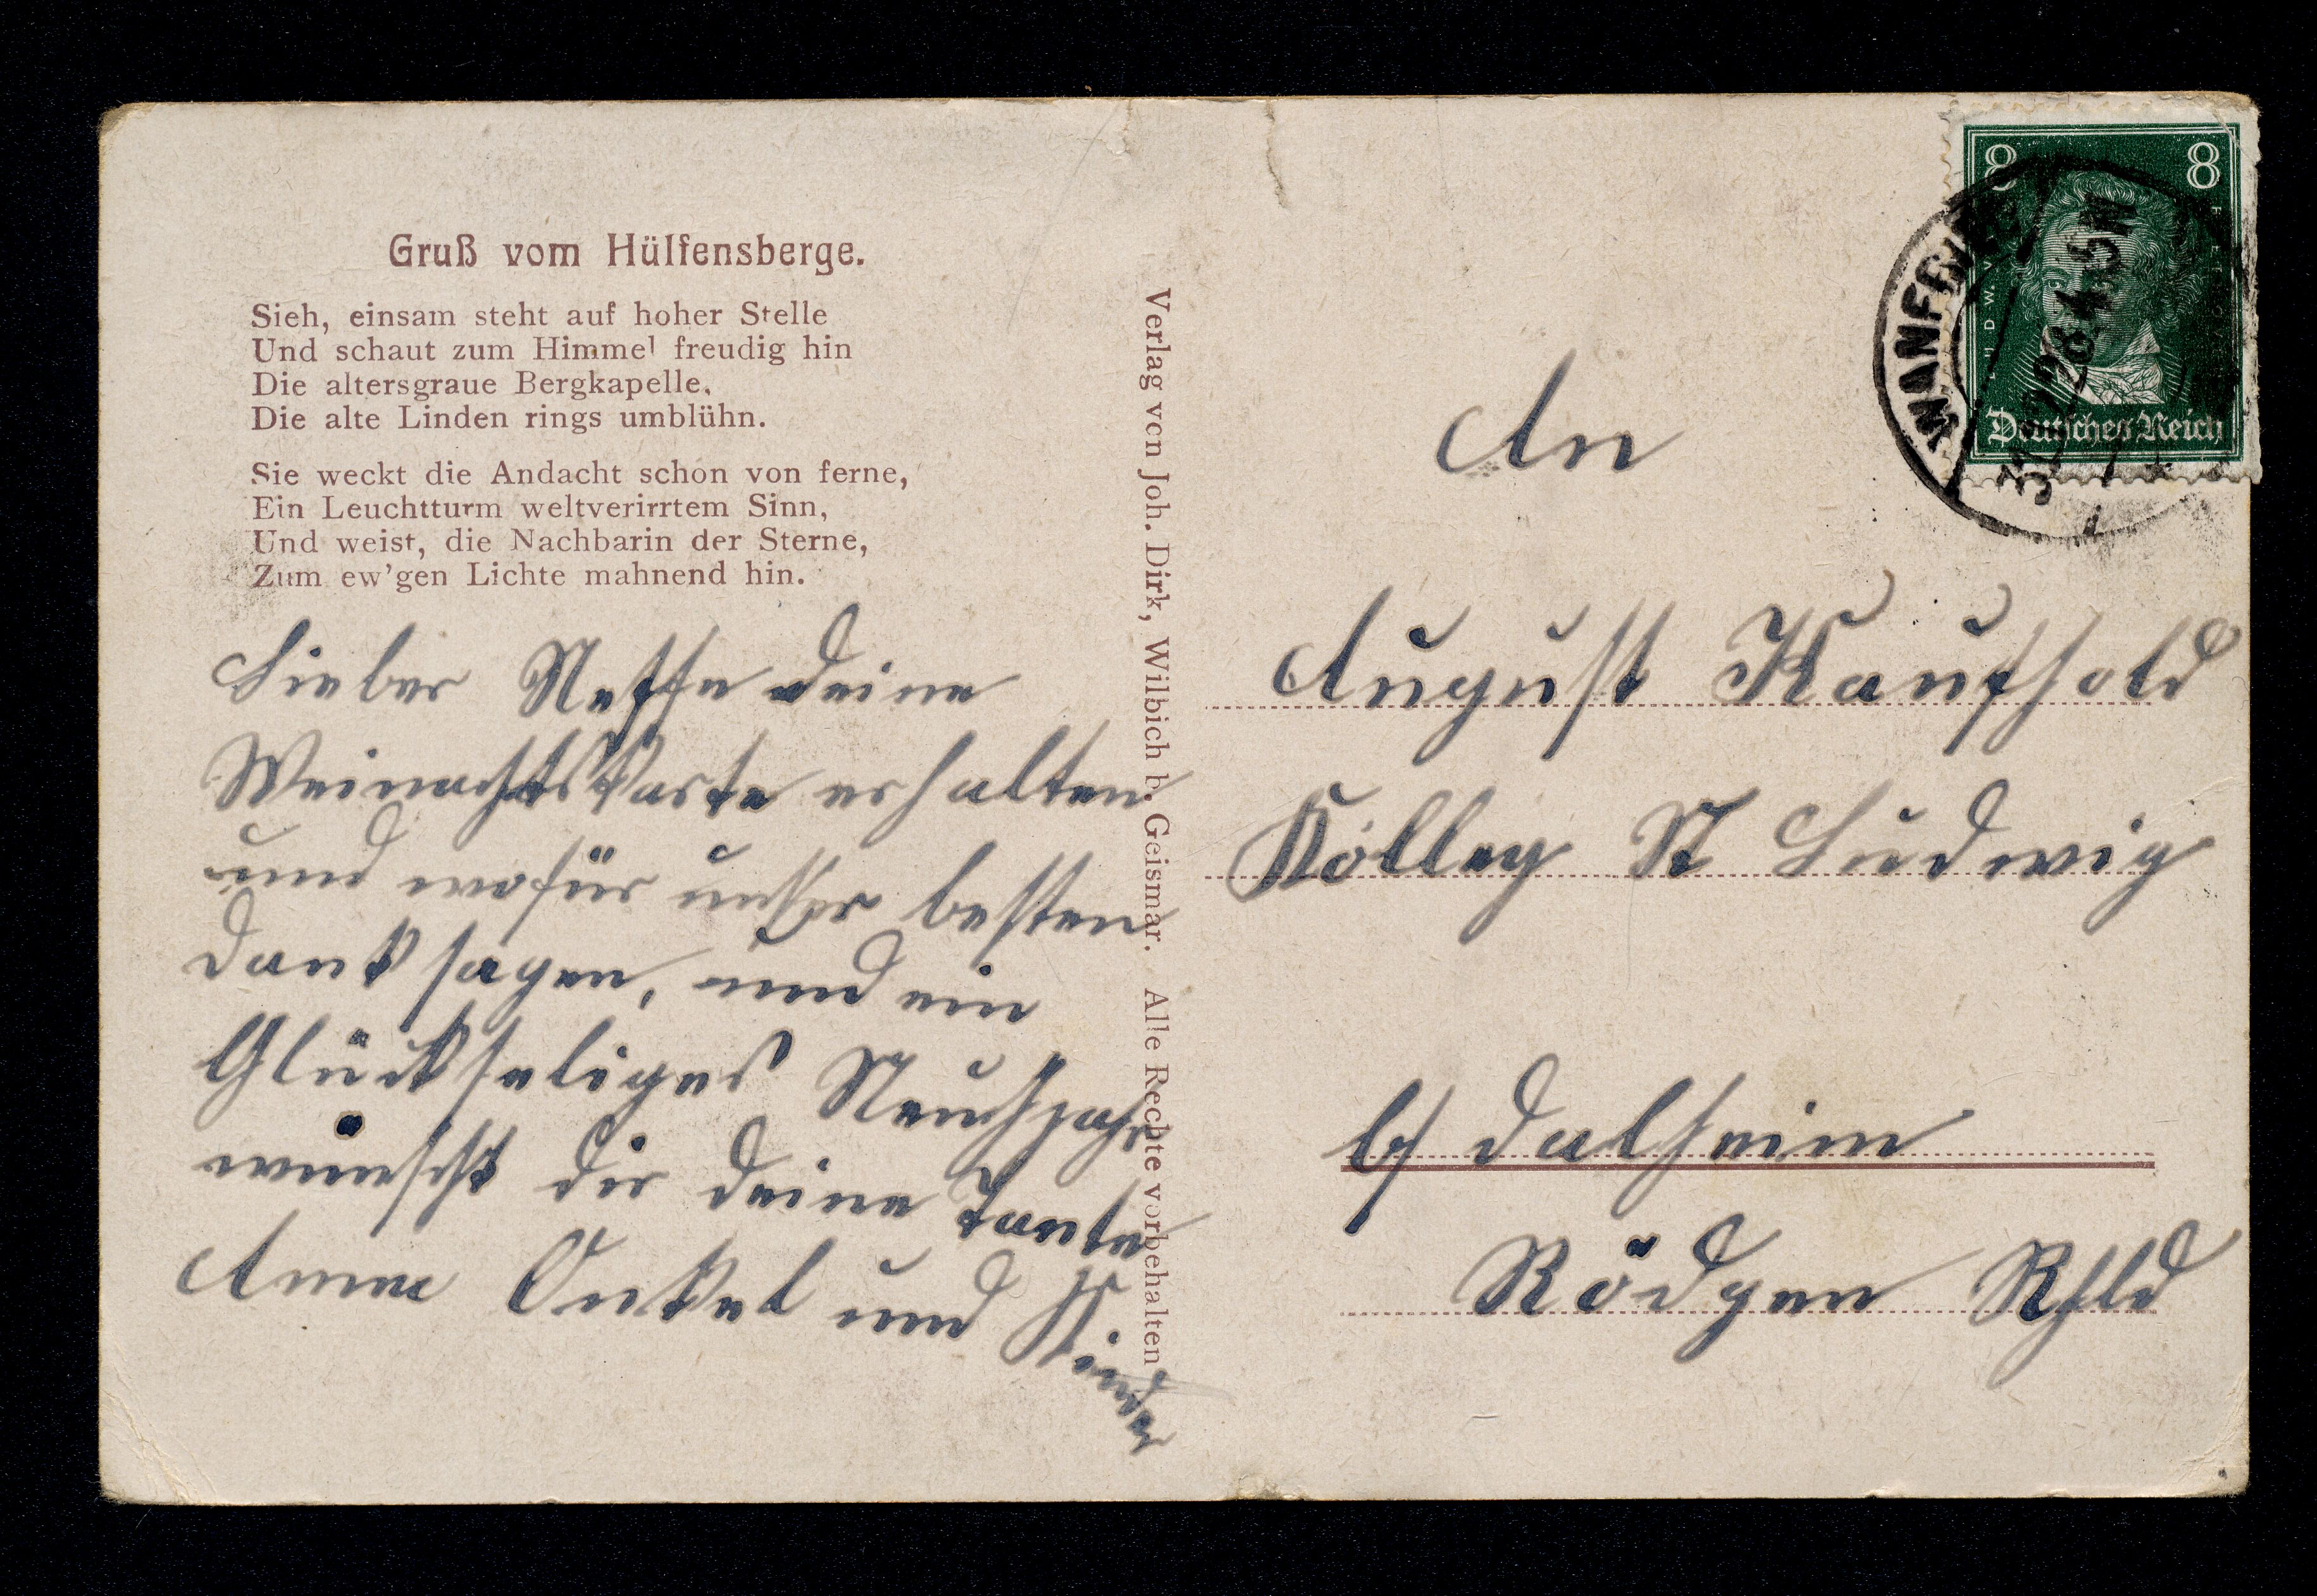 Gruß vom Hülfensberge.
Sieh, einsam steht auf hoher Stelle
Und schaut zum Himmel freudig hin
Die altersgraue Bergkapelle,
Die alte Linden rings umblühn.
Sie weckt die Andacht schon von ferne,
Ein Leuchtturm weltverirrtem Sinn,
Und weist, die Nachbarin der Sterne,
Zum ew'gen Lichte mahnend hin.
Lieber Neffe deine
Weinachtskarte erhalten
und wofür unser besten
Dank sagen, und ein
Glückseliges Neuhjahr
wünscht dir deine Tante
Anna Onkel und Kinder
Verlag von Joh. Dirk, Wilbich b. Geismar. Alle Rechte vorbehalten
8 8
LUDW. V. BEETHOVEN
Deutsches Reich
WANFRIED
31 28.4-5N
An
August Kaufhold
Kolleg St Ludwig
b/ Dalheim
Rödgen Rhld